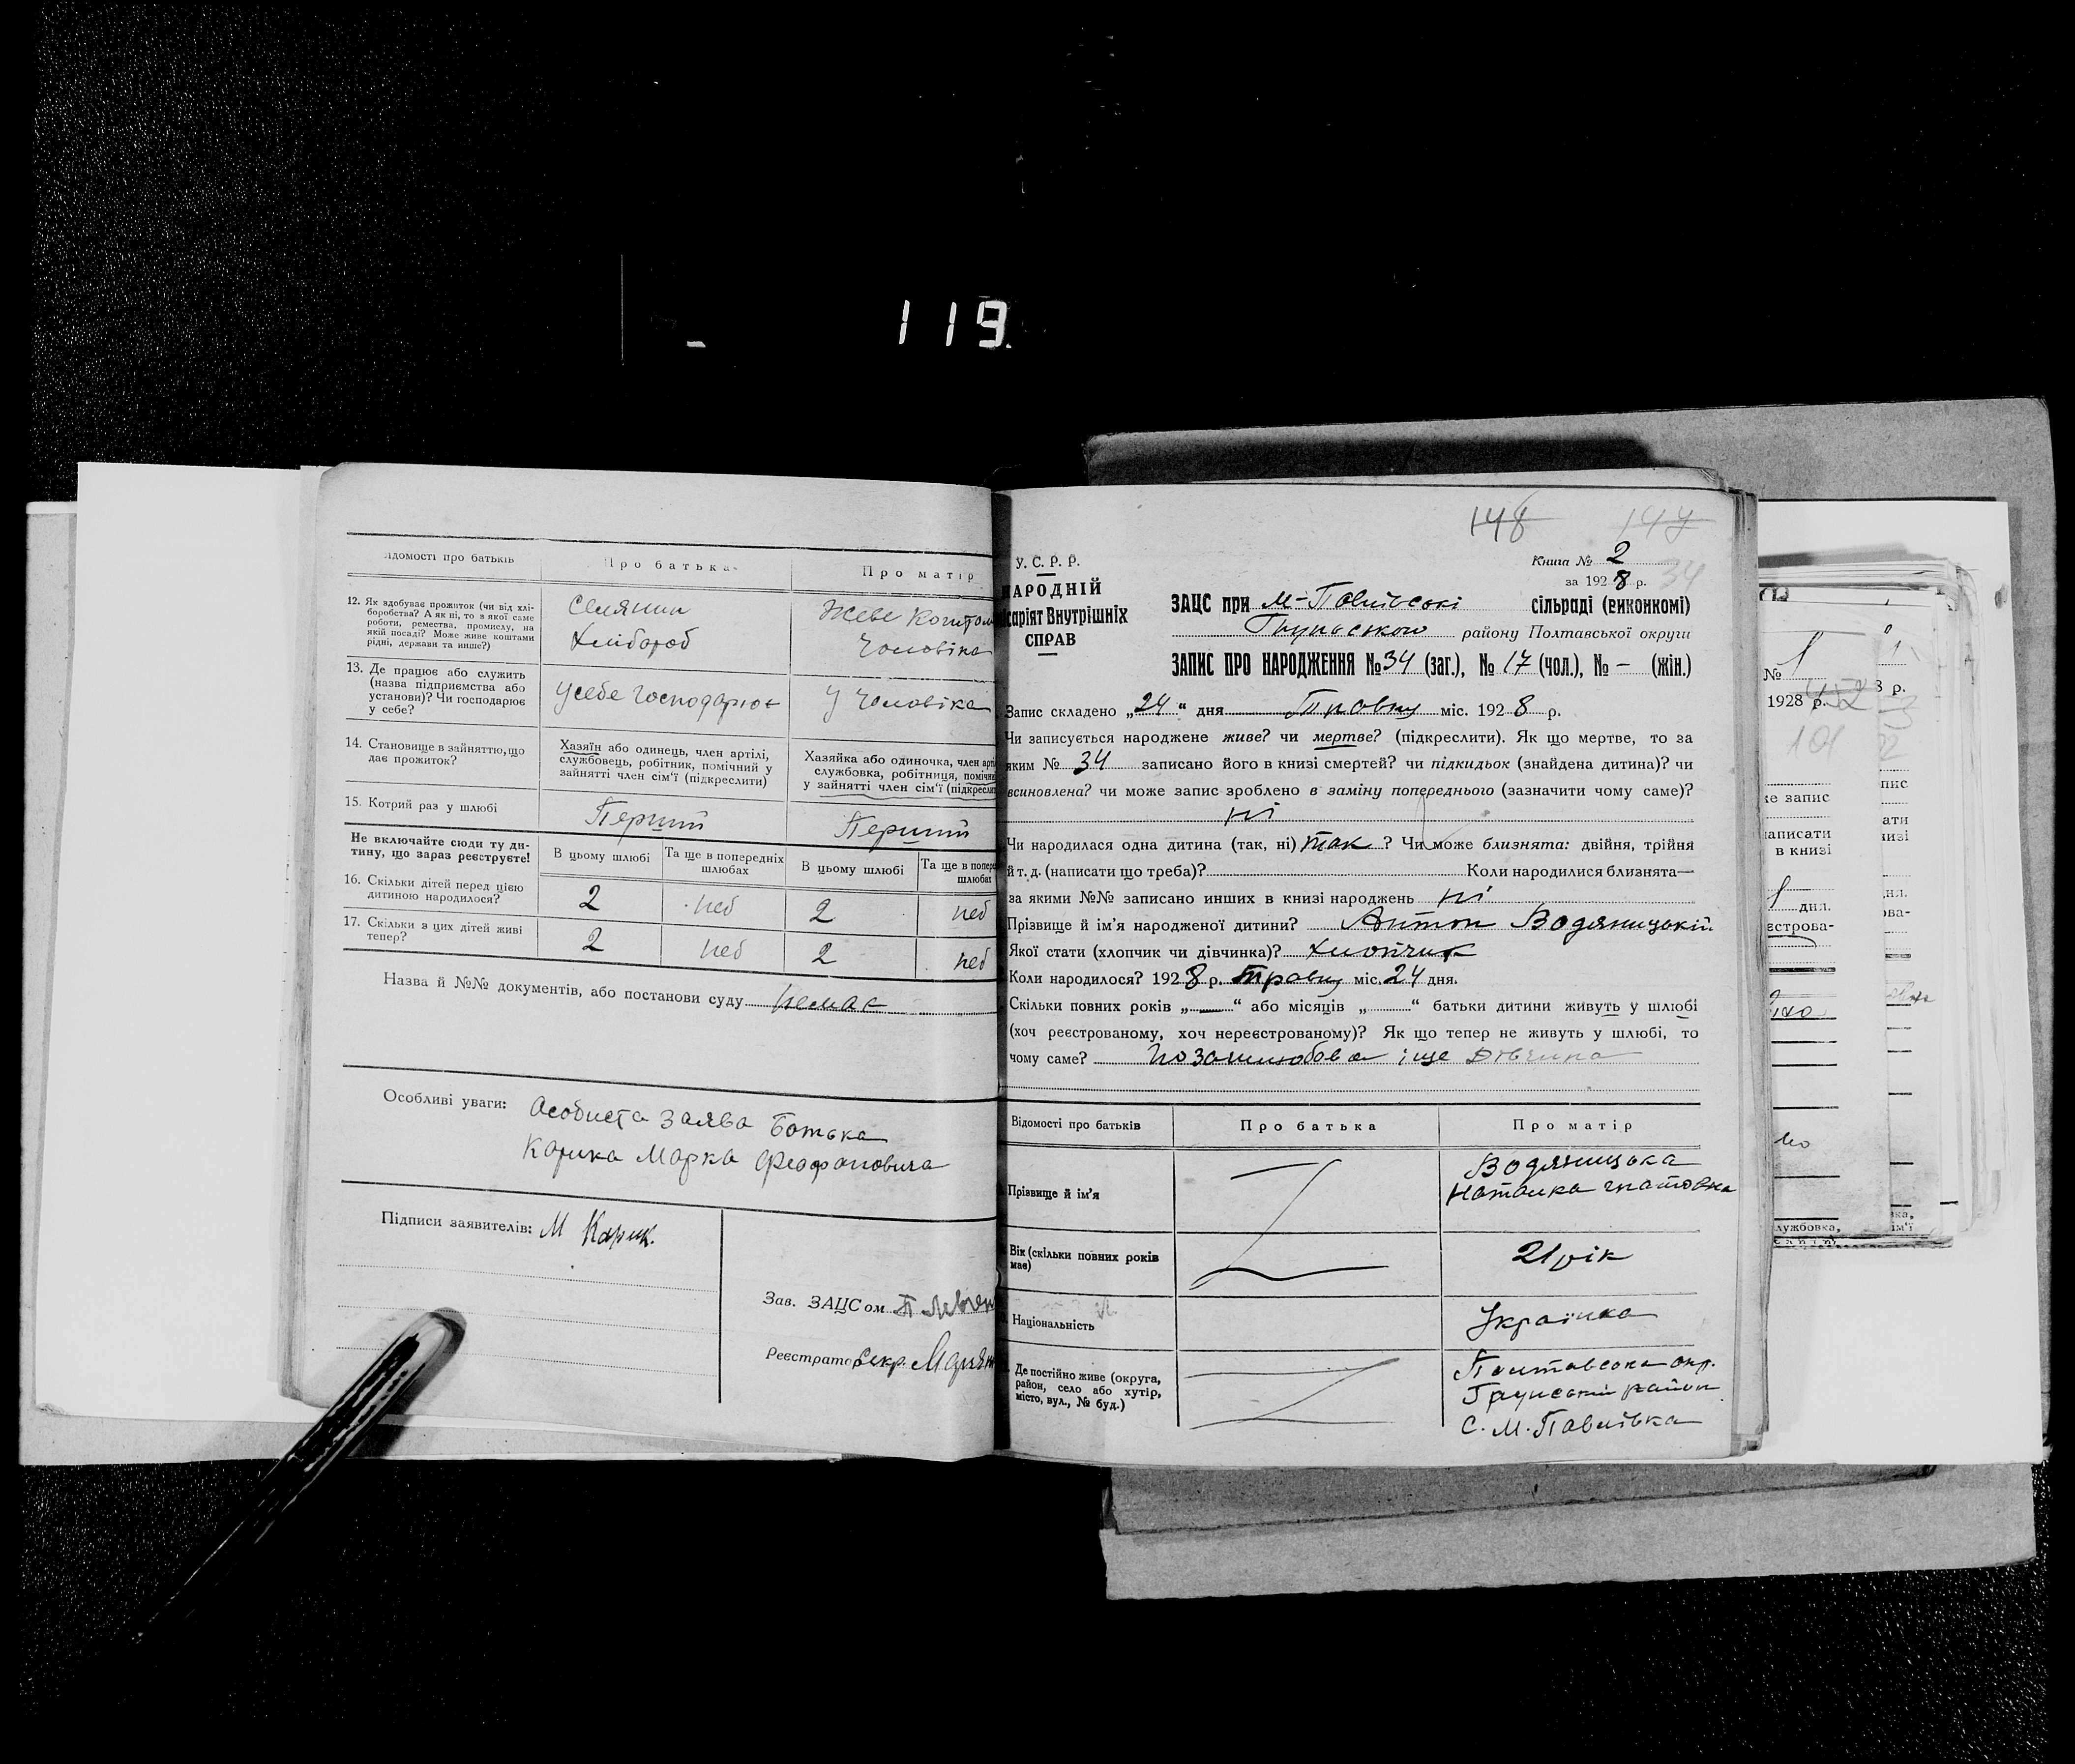 119.
Відомості про батьків
Про батька
Про матір
12. Як здобуває прожиток (чи від хлі-
боробства? А як ні, то з якої саме
роботи, ремества, промислу, на
якій посаді? Може живе коштами
рідні, держави та инше?)
Селянин
Хлібороб
Живе Коштом
Чоловіка
13. Де працює або служить
(назва підприємства або
установи)? Чи господарює
у себе?
усебе Господарює
У Чоловіка
14. Становище в зайняттю, що
дає прожиток?
Хазяїн або одинець, член артілі,
службовець, робітник, помічний у
зайнятті член сім'ї (підкреслити)
Хазяйка або одиночка, член арт
службовка, робітниця, помічн
у зайнятті член сім'ї (підкресли
15. Котрий раз у шлюбі
Перший
Перший
Не включайте сюди ту ди-
тину, що зараз реєструєте!
В цьому шлюбі
Та ще в попередніх
шлюбах
В цьому шлюбі
Та ще в попере
шлюбах
16. Скільки дітей перед цією
дитиною народилося?
2
неб
2
неб
17. Скільки з цих дітей живі
тепер?
2
неб
2
неб
Назва й №№ документів, або постанови суду немає
Особливі уваги: Особиста Заява Батька
Карика Марка Феофановича
Підписи заявителів: М Карик.
Зав. ЗАЦСом
Реєстратор Секр.
148 147
У. С. Р. Р.
НАРОДНІЙ
ісаріят Внутрішніх
СПРАВ
Книга № 2
за 1928 р. 34
ЗАЦС при М-Павлівські сільраді (виконкомі)
Грунського району Полтавської округи
ЗАПИС ПРО НАРОДЖЕННЯ № 34 (заг.), № 17 (чол.), № – (жін.)
Запис складено „24“ дня Травня міс. 1928 р.
Чи записується народжене живе? чи мертве? (підкреслити). Як що мертве, то за
яким № 34 записано його в книзі смертей? чи підкидьок (знайдена дитина)? чи
всиновлена? чи може запис зроблено в заміну попереднього (зазначити чому саме)?
ні
Чи народилася одна дитина (так, ні) так? Чи може близнята: двійня, трійня
й т. д. (написати що треба)? Коли народилися близнята—
за якими №№ записано инших в книзі народжень ні
Прізвище й ім'я народженої дитини? Антон Водяницький
Якої стати (хлопчик чи дівчинка)? хлопчик
Коли народилося? 1928 р. травня міс. 24 дня.
Скільки повних років „—“ або місяців „“ батьки дитини живуть у шлюбі
(хоч реєстрованому, хоч нереєстрованому)? Як що тепер не живуть у шлюбі, то
чому саме? Позашлюбова іще Дівчина
Відомості про батьків
Про батька
Про матір
Прізвище й ім'я
Водяницька
Наталка гнатовна
Вік (скільки повних років
має)
21 рік
Національність
Українка
Де постійно живе (округа,
район, село або хутір,
місто, вул., № буд.)
Полтавська окр.
Грунський район
С. М. Павлівка
№ 1
1928 р.
101
8 р.
е запис
написати
в книзі
дня.
єстрова-
службовка,